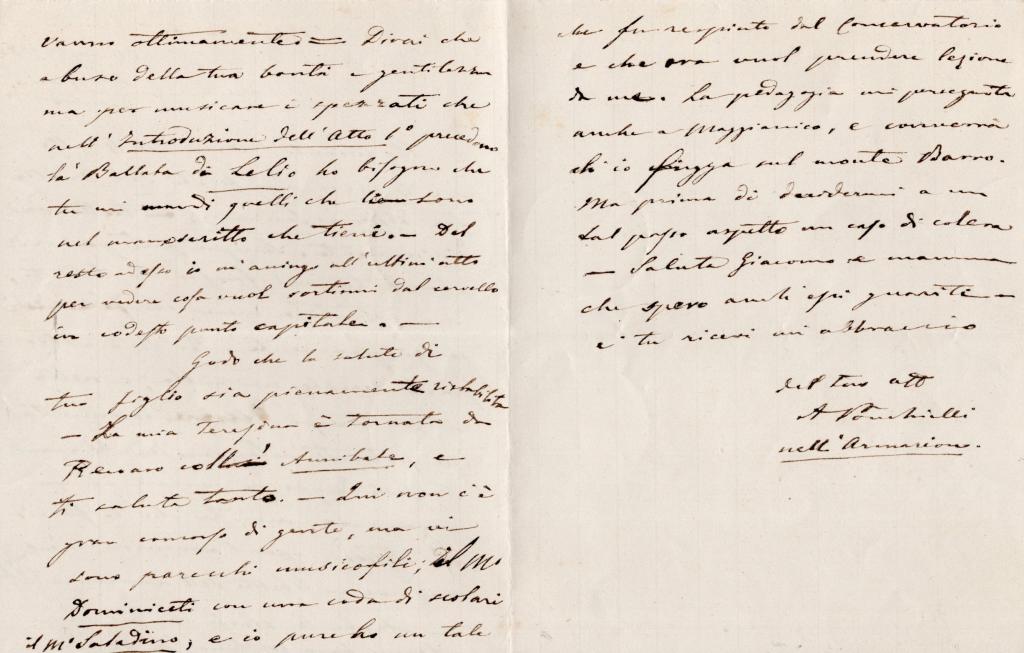 vanno ottimamente = Dirai che
abuso della tua bontà e gentilezza
ma per musicare i spezzati che
nell' Introduzione dell'Atto 1º precedono
la Ballata di Lelio ho bisogno che
tu mi mandi quelli che sono
nel manoscritto che tieni. — Del
resto adesso io m'accingo all'ultimo atto
per vedere cosa vuol sortirmi dal cervello
in codesto punto capitale. —
Godo che la salute di
tuo figlio sia pienamente ristabilita
— La mia Teresina è tornata da
Recoaro coll' Annibale, e
ti saluta tanto. — Qui non c'è
gran concorso di gente, ma vi
sono parecchi musicofili; Il Mº
Dominiceti con una coda di scolari
il Mº Saladino, e io pure ho un tale
che fu respinto dal Conservatorio
e che ora vuol prendere lezione
da me. La pedagogia mi perseguita
anche a Maggianico, e converrà
ch'io fugga sul monte Barro.
Ma prima di decidermi a un
tal passo aspetto un caso di colera
— Saluta Giacomo e mamma
che spero anch'essi guariti —
e tu ricevi un abbraccio
del tuo aff
A Ponchielli
nell'Armarion.